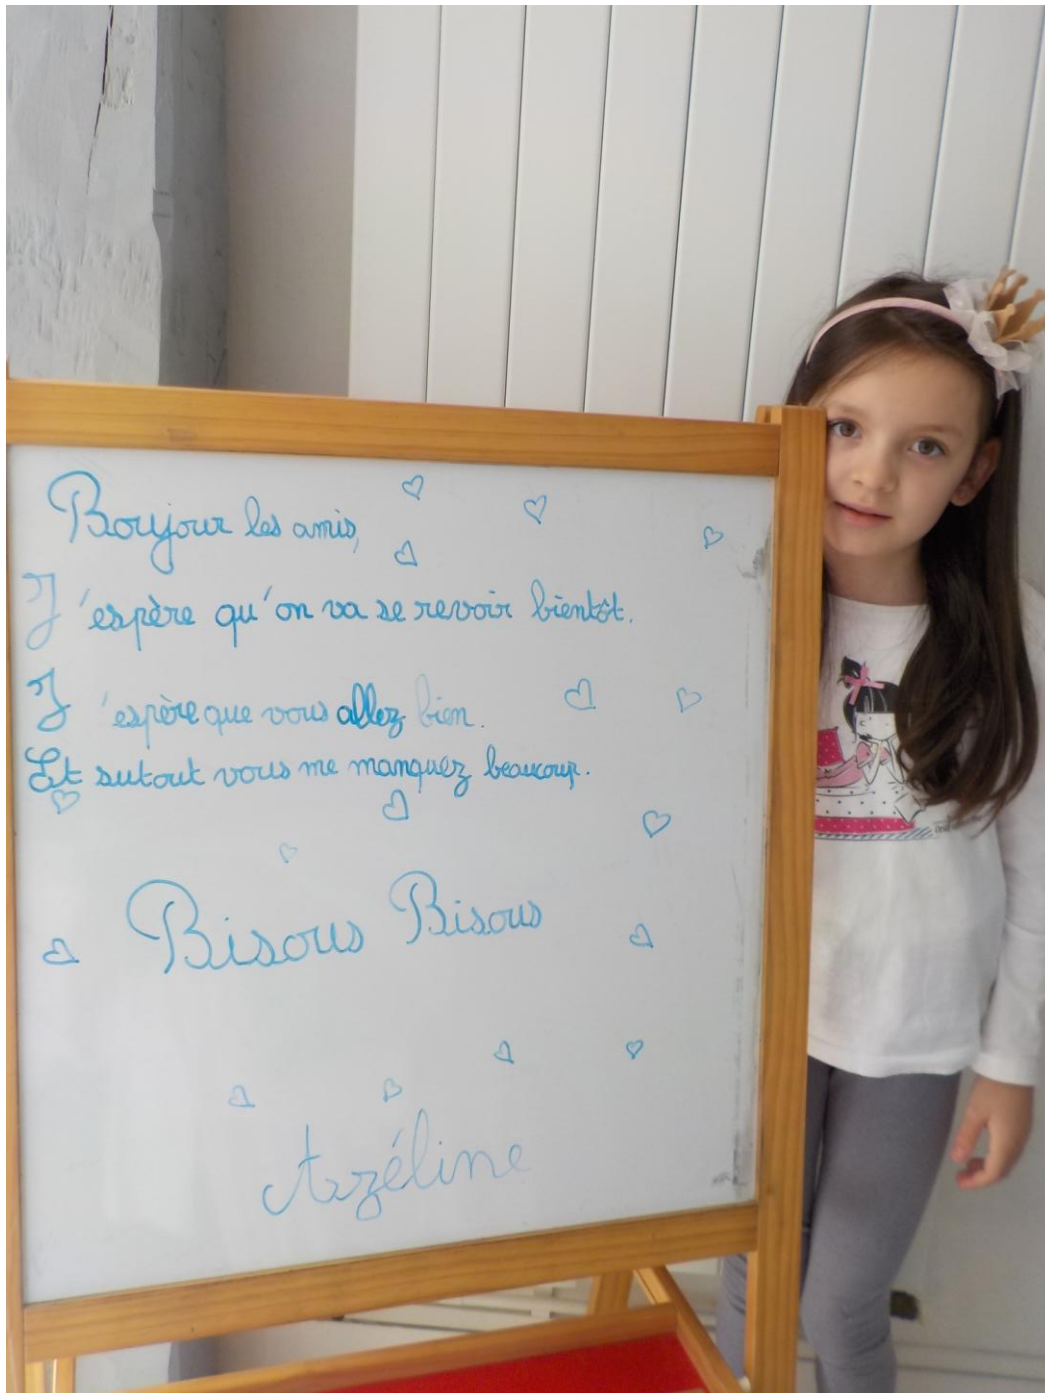 Boujour les amis,
J'espère qu'on va se revoir bientôt.
J'espère que vous allez bien.
Et sutout vous me manquez beaucoup.
Bisous Bisous
Azéline